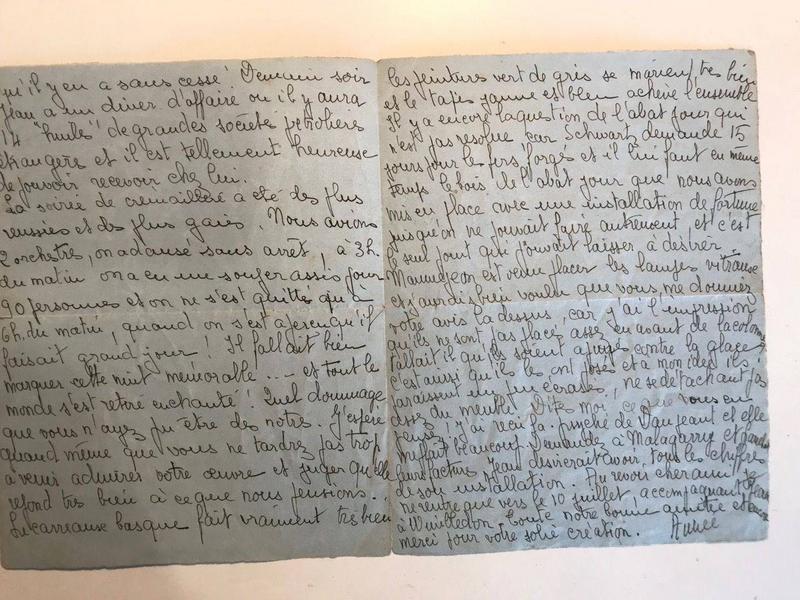 qu'il y en a sans cesse! Demain soir
Jean a un diner d'affaire ou il y aura
14 "huiles" de grandes societes petrolieres
etrangeres et il est tellement heureuse
de pouvoir recevoir chez lui.
La soirée de cremaillere a été des plus
reussies et des plus gaies. Nous avions
2 orchestres, on a dansé sans arrêt, à 3h.
du matin on a eu un souper assis pour
90 personnes et on ne s'est quitté qu'à
6h. du matin, quand on s'est aperçu qu'il
faisait grand jour! Il fallait bien
marquer cette nuit memorable ... et tout le
monde s'est retiré enchanté! Quel dommage
que vous n'ayez pu être des notres. J'espère
quand même que vous ne tardrez pas trop
à venir admirer votre œuvre et juger qu'elle
repond très bien à ce que nous pensions.
Le carreau basque fait vraiment très bien
les peintures vert de gris se marient très bien
et le tapis jaune est bleu achève l'ensemble
Il y a encore la question de l'abat jour qui
n'est pas resolue car Schwartz demande 15
jours pour le fers forgés et il lui faut en même
temps le bois de l'abat jour que nous avons
mis en place avec une installation de fortune
puisqu'on ne pouvait faire autrement, et c'est
le seul point qui pouvait laisser à desirer.
est venu placer les lampes vitrause
et j'aurais bien voulu que vous me donniez
votre avis la dessus, car j'ai l'impression
qu'ils ne sont pas placé assez en avant de la colonne,
fallait il qu'ils soient apuyés contre la glace
c'est ainsi qu'ils les ont posés et à mon idée ils
paraissent un peu écrasés, ne se detachant pas
assez du meuble. Dites moi ce que vous en
pensez, j'ai reçu la de et elle
me plait beaucoup. Demandez à et
leurs facture Jean desirerait avoir tous les chiffres
de son installation Au revoir cher ami je
rentre que vers le 10 juillet, accompagnant Jean
à Wimbledon. Toute notre bonne amitié et encore
merci pour votre jolie création.